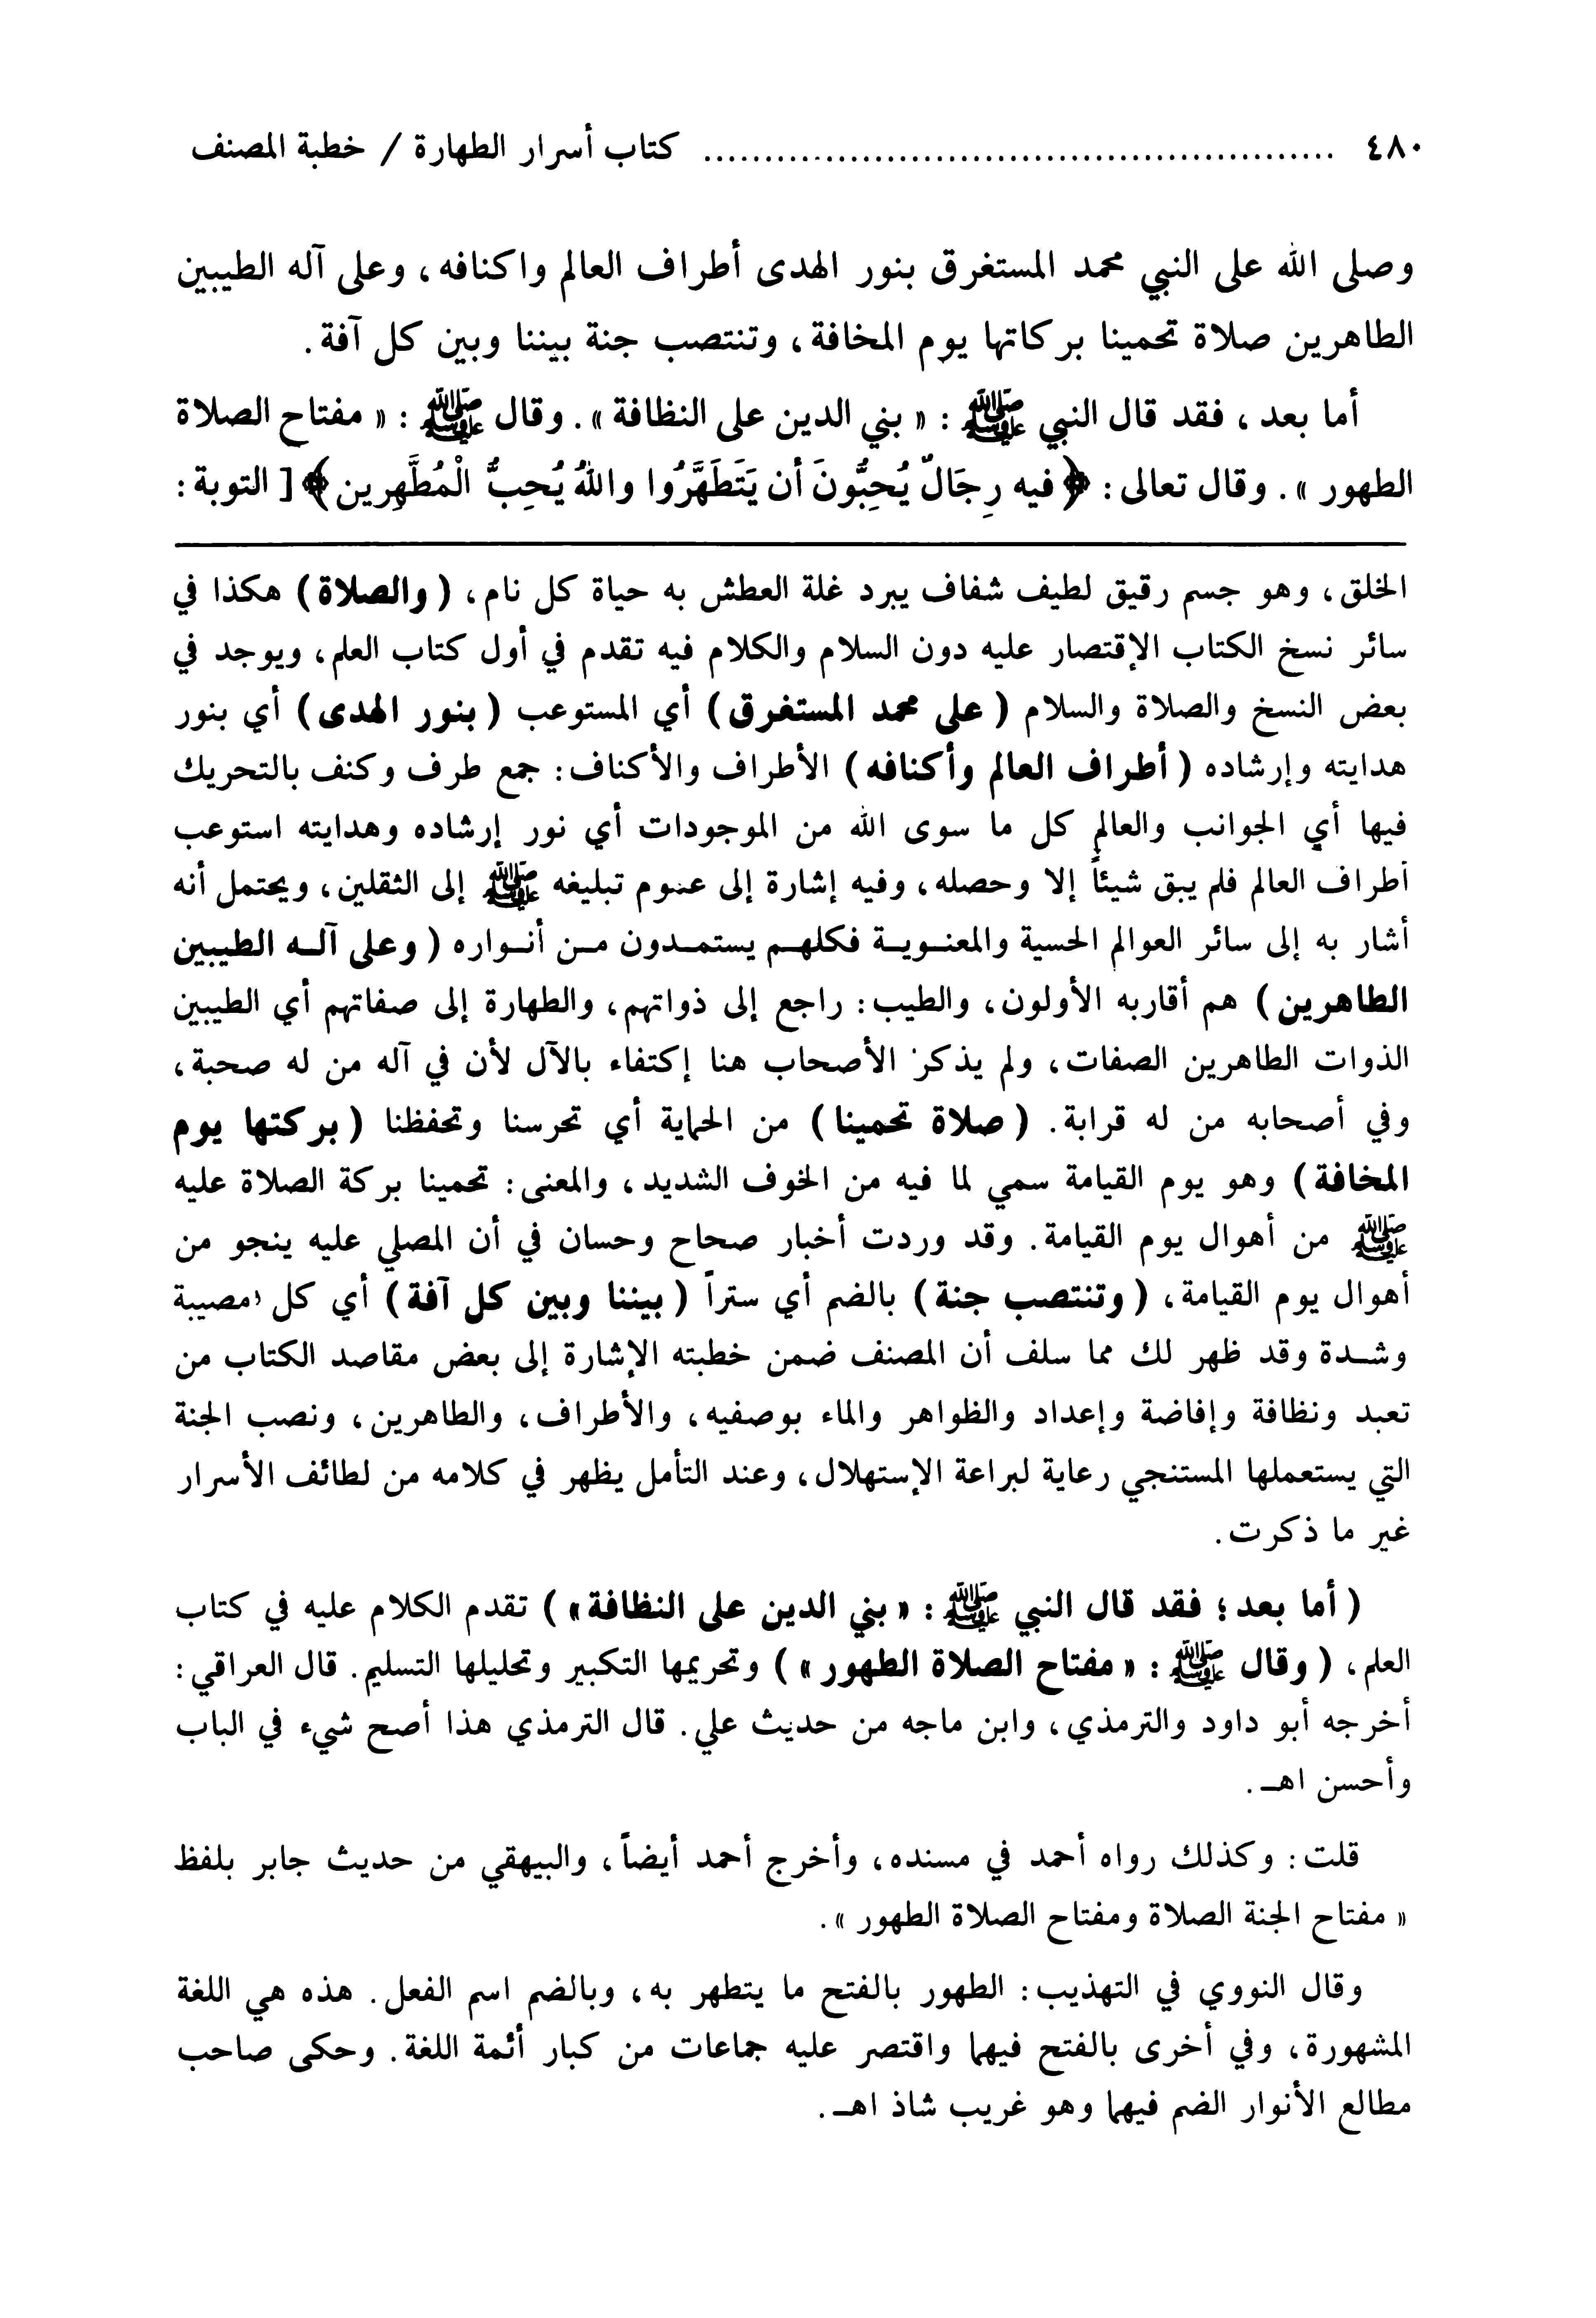 ٤٨٠ ........................................................ كتاب أسرار الطهارة / خطبة المصنف
وصلى الله على النبي محمد المستغرق بنور الهدى أطراف العالم واكنافه، وعلى آله الطيبين
الطاهرين صلاة تحمينا بركاتها يوم المخافة، وتنتصب جنة بيننا وبين كل آفة.
أما بعد، فقد قال النبي ﷺ : « بني الدين على النظافة ». وقال ﷺ : « مفتاح الصلاة
الطهور ». وقال تعالى: ﴿فيه رِجَالٌ يُحِبُّونَ أن يَتَطَهَّرُوا واللهُ يُحِبُّ الْمُطَّهِرِين﴾ [ التوبة:
الخلق، وهو جسم رقيق لطيف شفاف يبرد غلة العطش به حياة كل نام، ( والصلاة ) هكذا في
سائر نسخ الكتاب الإقتصار عليه دون السلام والكلام فيه تقدم في أول كتاب العلم، ويوجد في
بعض النسخ والصلاة والسلام ( على محمد المستغرق ) أي المستوعب ( بنور الهدى ) أي بنور
هدايته وإرشاده ( أطراف العالم وأكنافه ) الأطراف والأكناف: جمع طرف وكنف بالتحريك
فيها أي الجوانب والعالم كل ما سوى الله من الموجودات أي نور إرشاده وهدايته استوعب
أطراف العالم فلم يبق شيئاً إلا وحصله، وفيه إشارة إلى عموم تبليغه ﷺ إلى الثقلين، ويحتمل أنه
أشار به إلى سائر العوالم الحسية والمعنوية فكلهم يستمدون من أنواره ( وعلى آله الطيبين
الطاهرين ) هم أقاربه الأولون، والطيب: راجع إلى ذواتهم، والطهارة إلى صفاتهم أي الطيبين
الذوات الطاهرين الصفات، ولم يذكر الأصحاب هنا إكتفاء بالآل لأن في آله من له صحبة،
وفي أصحابه من له قرابة. ( صلاة تحمينا ) من الحماية أي تحرسنا وتحفظنا ( بركتها يوم
المخافة ) وهو يوم القيامة سمي لما فيه من الخوف الشديد، والمعنى: تحمينا بركة الصلاة عليه
ﷺ من أهوال يوم القيامة. وقد وردت أخبار صحاح وحسان في أن المصلي عليه ينجو من
أهوال يوم القيامة، ( وتنتصب جنة ) بالضم أي ستراً ( بيننا وبين كل آفة ) أي كل مصيبة
وشدة وقد ظهر لك مما سلف أن المصنف ضمن خطبته الإشارة إلى بعض مقاصد الكتاب من
تعبد ونظافة وإفاضة وإعداد والظواهر والماء بوصفيه، والأطراف، والطاهرين، ونصب الجنة
التي يستعملها المستنجي رعاية لبراعة الإستهلال، وعند التأمل يظهر في كلامه من لطائف الأسرار
غير ما ذكرت.
( أما بعد؛ فقد قال النبي ﷺ : « بني الدين على النظافة» ) تقدم الكلام عليه في كتاب
العلم، ( وقال ﷺ : « مفتاح الصلاة الطهور » ) وتحريمها التكبير وتحليلها التسليم. قال العراقي:
أخرجه أبو داود والترمذي، وابن ماجه من حديث علي. قال الترمذي هذا أصح شيء في الباب
وأحسن اهـ.
قلت: وكذلك رواه أحمد في مسنده، وأخرج أحمد أيضاً، والبيهقي من حديث جابر بلفظ
« مفتاح الجنة الصلاة ومفتاح الصلاة الطهور ».
وقال النووي في التهذيب: الطهور بالفتح ما يتطهر به، وبالضم اسم الفعل. هذه هي اللغة
المشهورة، وفي أخرى بالفتح فيهما واقتصر عليه جماعات من كبار أئمة اللغة. وحكى صاحب
مطالع الأنوار الضم فيهما وهو غريب شاذ اهـ.